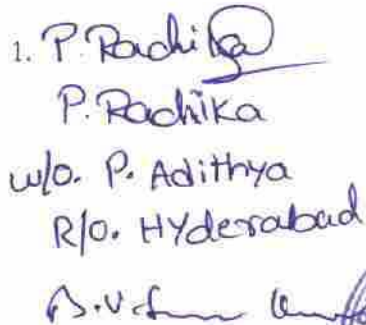 1. P. Radhika
P. Radhika
W/o. P. Adithya
R/o. Hyderabad
B.V.